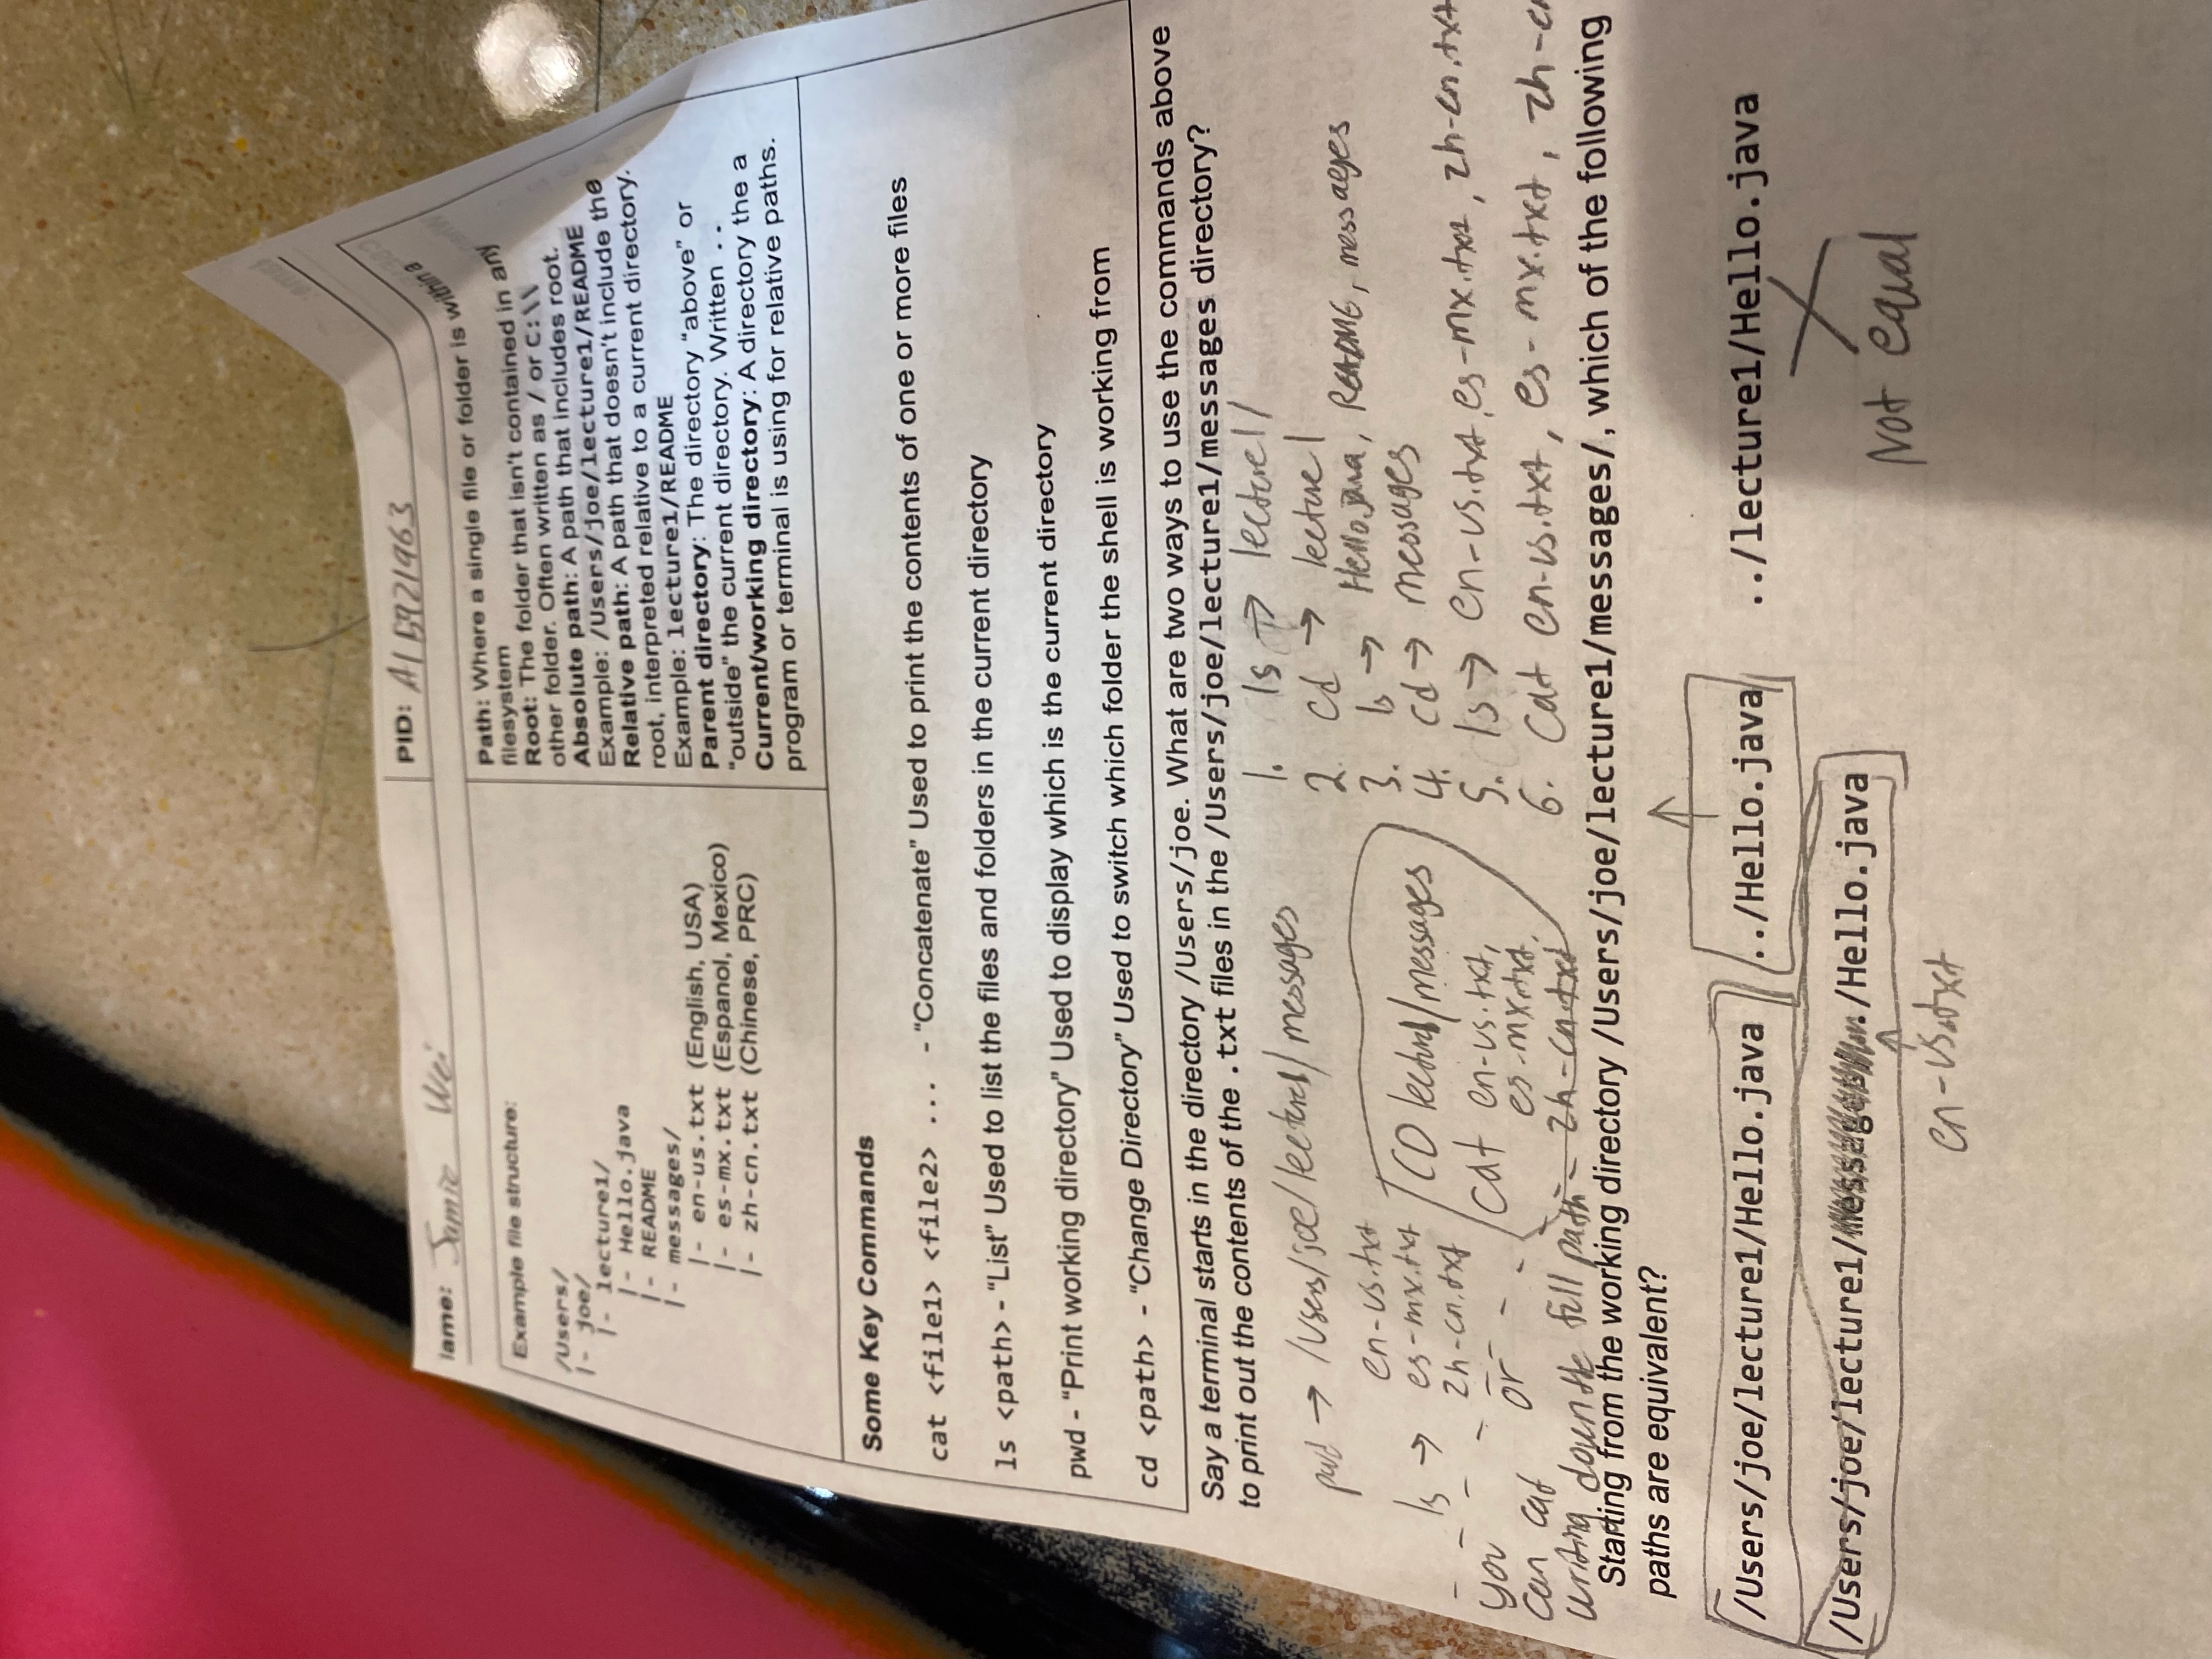 lame: Jamie Wei
PID: A15921963
Example file structure:
/Users/
|- joe/
|- lecture1/
|- Hello.java
|- README
|- messages/
|- en-us.txt (English, USA)
|- es-mx.txt (Espanol, Mexico)
|- zh-cn.txt (Chinese, PRC)
Path: Where a single file or folder is within a
filesystem
Root: The folder that isn't contained in any
other folder. Often written as / or C:\\
Absolute path: A path that includes root.
Example: /Users/joe/lecture1/README
Relative path: A path that doesn't include the
root, interpreted relative to a current directory.
Example: lecture1/README
Parent directory: The directory “above” or
“outside” the current directory. Written ..
Current/working directory: A directory the a
program or terminal is using for relative paths.
Some Key Commands
cat <file1> <file2> ... - “Concatenate” Used to print the contents of one or more files
ls <path> - “List” Used to list the files and folders in the current directory
pwd - “Print working directory” Used to display which is the current directory
cd <path> - “Change Directory” Used to switch which folder the shell is working from
Say a terminal starts in the directory /Users/joe. What are two ways to use the commands above
to print out the contents of the .txt files in the /Users/joe/lecture1/messages directory?
pwd → /Users/joe/lecture1/messages
en-us.txt
ls → es-mx.txt
zh-cn.txt
you
can cat or
writing down the full path
CD lecture1/messages
cat en-us.txt,
es-mx.txt,
zh-cn.txt
1. ls → lecture1/
2. cd → lecture1
3. ls → Hello.java, README, messages
4. cd → messages
5. ls → en-us.txt, es-mx.txt, zh-cn.txt
6. cat en-us.txt, es-mx.txt, zh-cn
Starting from the working directory /Users/joe/lecture1/messages/, which of the following
paths are equivalent?
/Users/joe/lecture1/Hello.java ../Hello.java ../lecture1/Hello.java
/Users/joe/lecture1/messages/../Hello.java
en-us.txt
Not equal